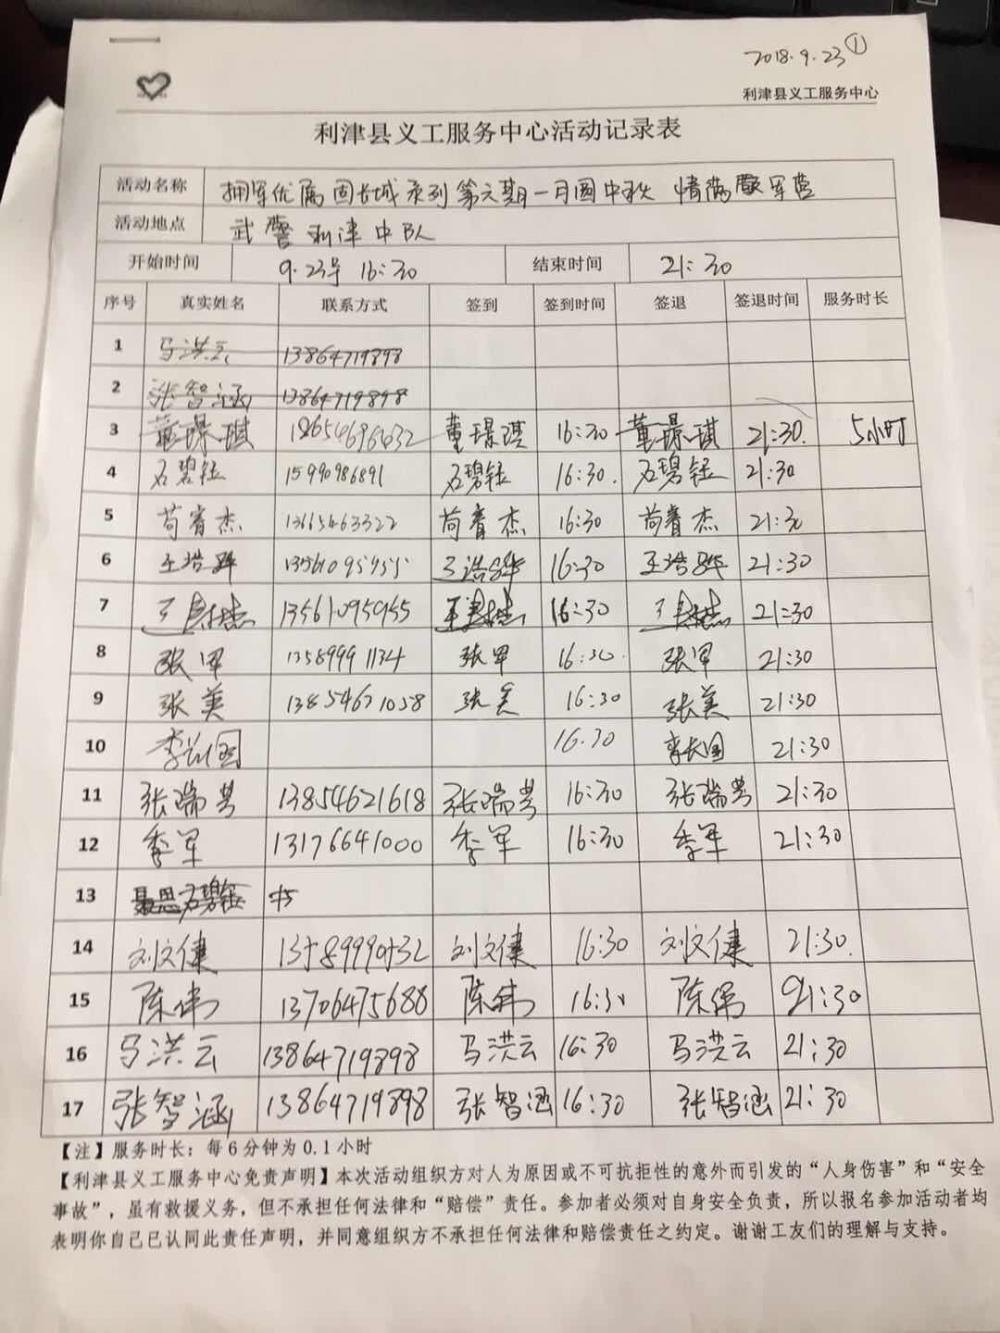 2018.9.23 ①
利津县义工服务中心
利津县义工服务中心活动记录表
活动名称 拥军优属 固长城系列第六期一月圆中秋 情满警营
活动地点 武警利津中队
开始时间 9.23号 16:30 结束时间 21:30
序号 真实姓名 联系方式 签到 签到时间 签退 签退时间 服务时长
1 马洪云 13864719898
2 张智涵 13864719898
3 董璟琪 董璟琪 16:30 董璟琪 21:30. 5小时
4 石碧钰 15990986891 石碧钰 16:30. 石碧钰 21:30
5 苟睿杰 苟睿杰 16:30 苟睿杰 21:30
6 王浩骅 王浩骅 16:30 王浩骅 21:30
7 13561095955 16:30 21:30
8 张军 13589991134 张军 16:30. 张军 21:30
9 张美 13854671058 张美 16:30 张美 21:30
10 李长国 16.30 李长国 21:30
11 张瑞芳 13854621618 张瑞芳 16:30 张瑞芳 21:30
12 季军 13176641000 季军 16:30 季军 21:30
13
14 刘文健 刘文健 16:30 刘文健 21:30.
15 陈伟 13706475688 陈伟 16:30 陈伟 21:30
16 马洪云 13864719898 马洪云 16:30 马洪云 21:30
17 张智涵 13864719898 张智涵 16:30 张智涵 21:30
【注】服务时长：每6分钟为0.1小时
【利津县义工服务中心免责声明】本次活动组织方对人为原因或不可抗拒性的意外而引发的“人身伤害”和“安全
事故”，虽有救援义务，但不承担任何法律和“赔偿”责任。参加者必须对自身安全负责，所以报名参加活动者均
表明你自己已认同此责任声明，并同意组织方不承担任何法律和赔偿责任之约定。谢谢工友们的理解与支持。